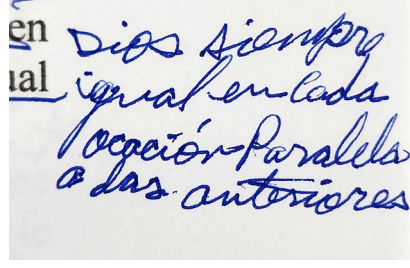 en Dios siempre
ual igual en cada
ocación-Paralela
a das anteriores